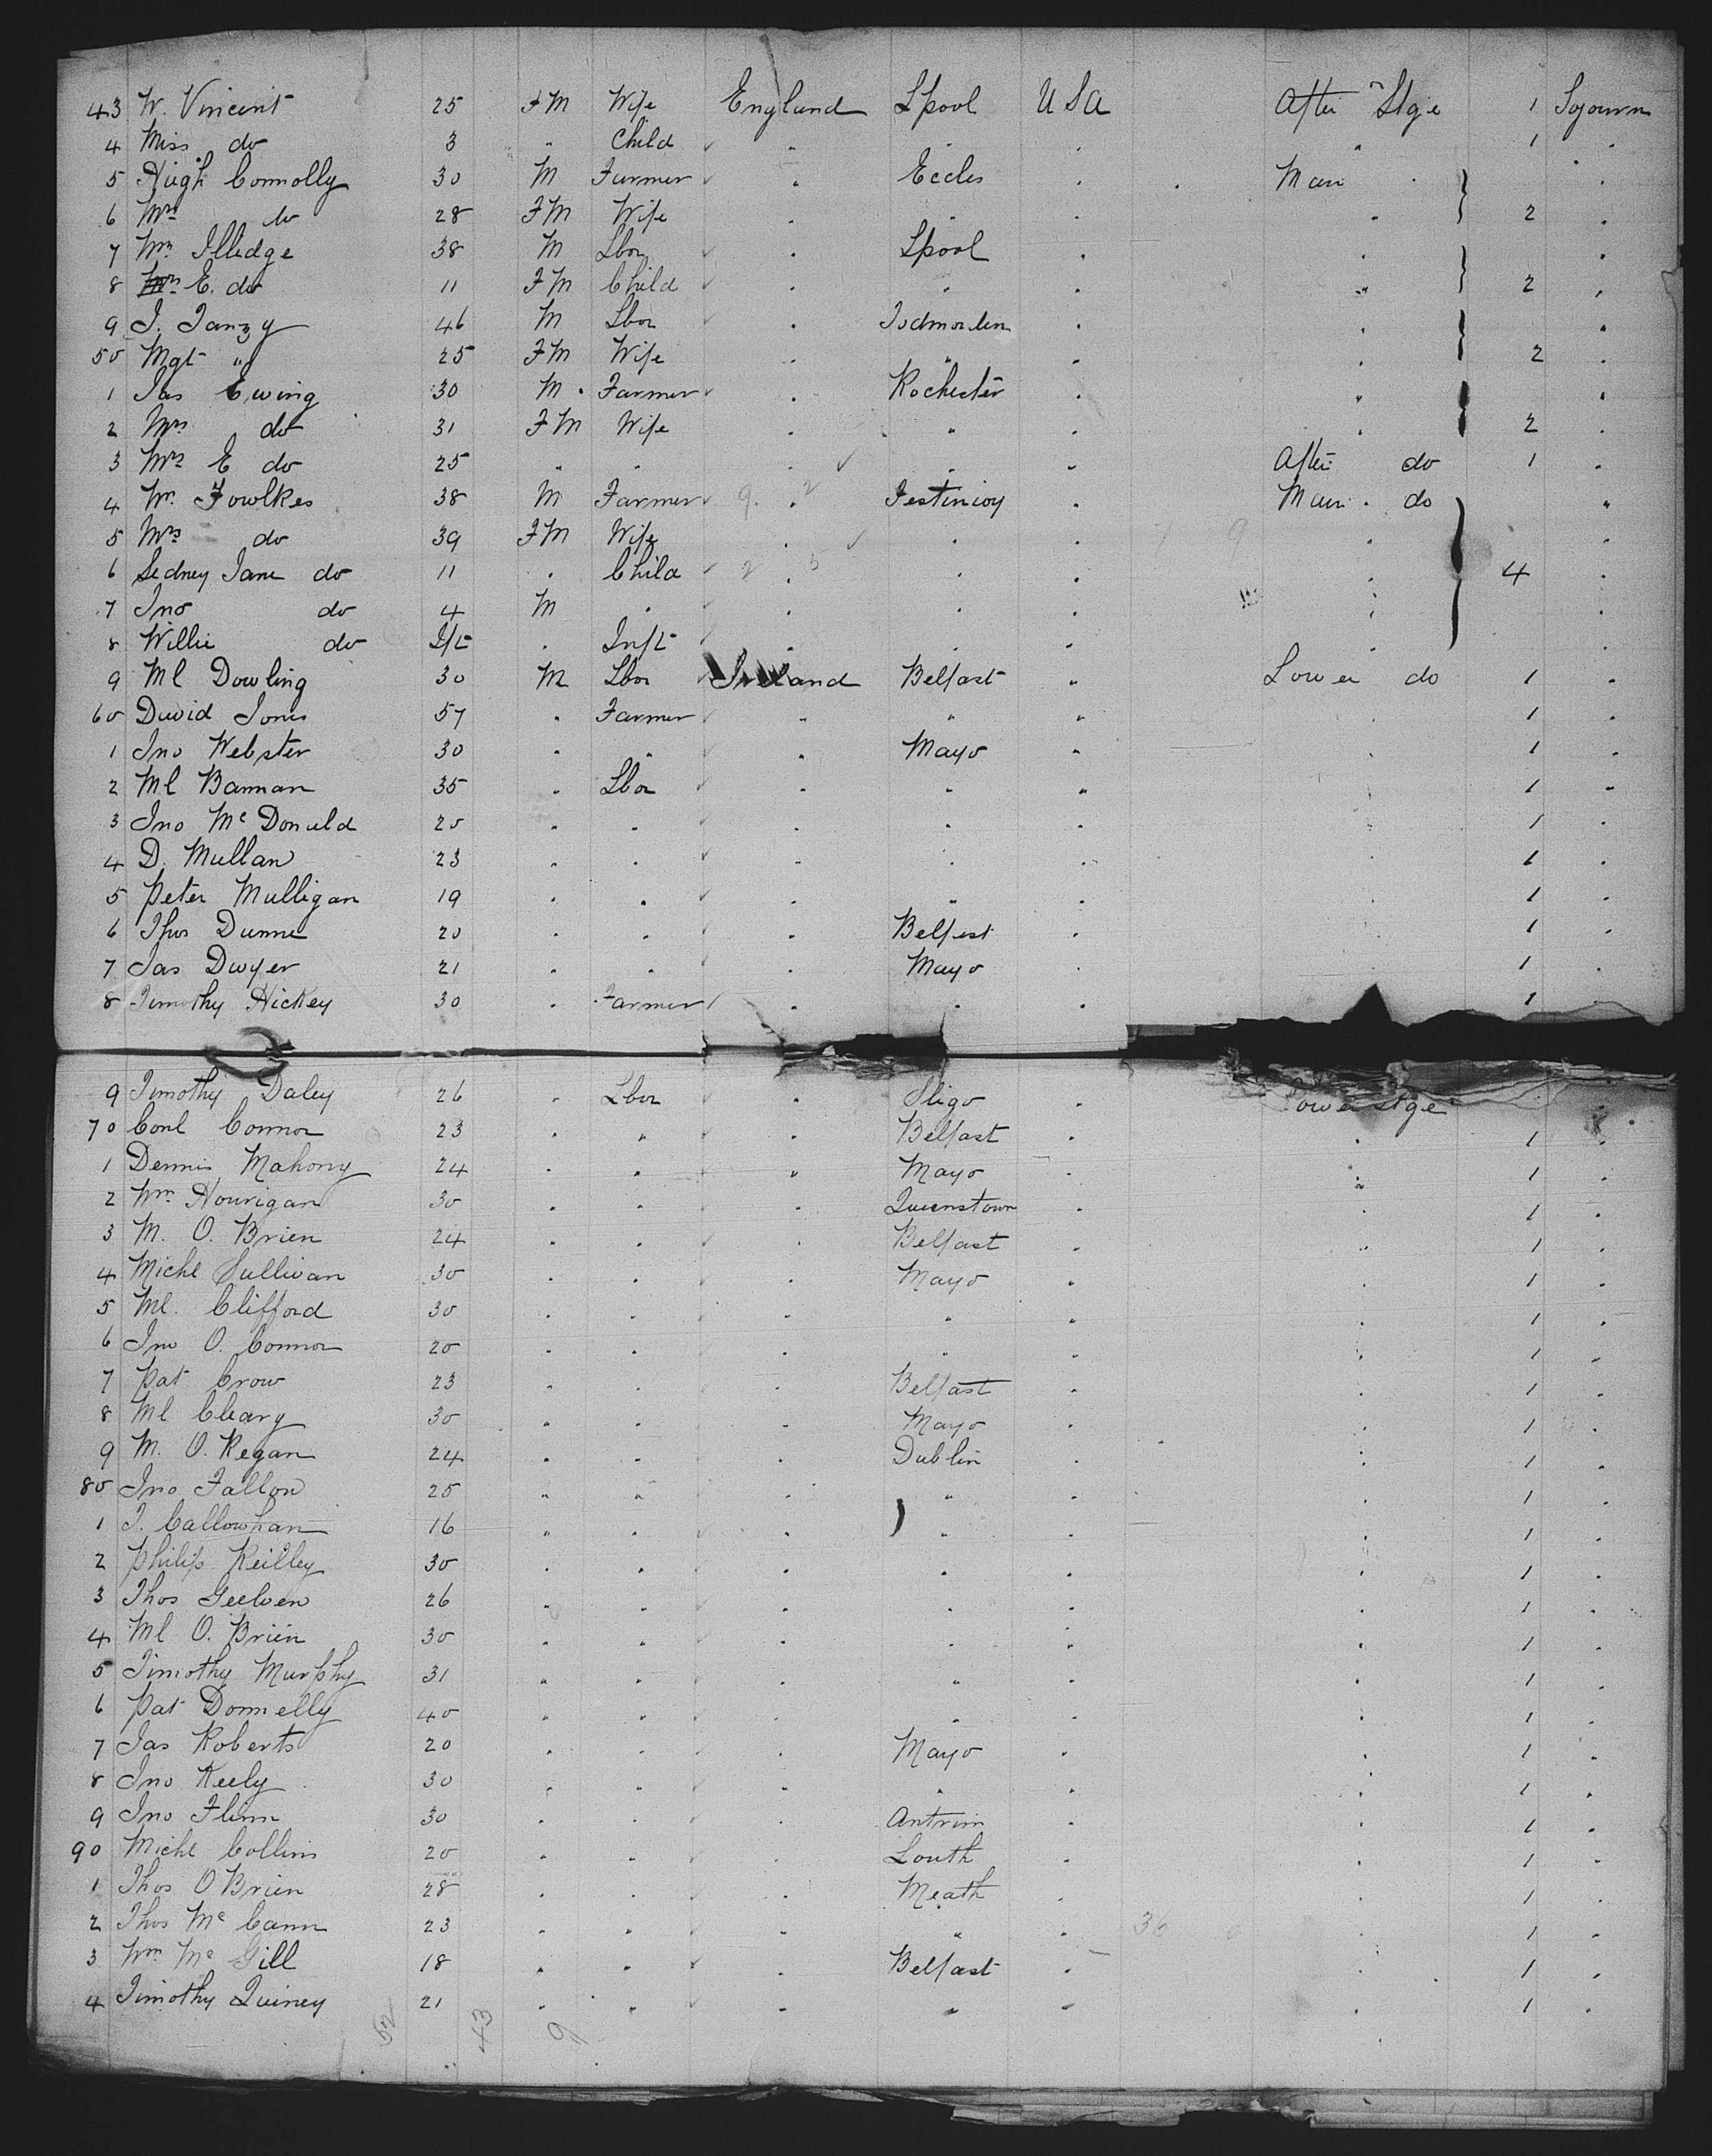 43 W. Vincent 25 FM Wife England Lpool USA After Stge 1 Sojourn
4 Miss do 3 " Child " " " " 1 "
5 Hugh Connolly 30 M Farmer " Eccles " Main "
6 Mrs do 28 FM Wife " " " " 2 "
7 Wm Illedge 38 M Lbor " Lpool " " "
8 E. do 11 FM Child " " " " 2 "
9 J. Tanzy 46 M Lbor " Todmorden " " "
50 Mgt " 25 FM Wife " " " " 2 "
1 Jas Ewing 30 M Farmer " Rochester " " "
2 Mrs do 31 FM Wife " " " " 2 "
3 Mrs E do 25 " " " " " After do 1 "
4 Wm Fowlkes 38 M Farmer " Festiniog " Main do "
5 Mrs do 39 FM Wife " " " " "
6 Sedney Jane do 11 " Child " " " " 4 "
7 Jno do 4 M " " " " " "
8 Willie do Ift " Inft " " " " "
9 Ml Dowling 30 M Lbor Ireland Belfast " Lower do 1 "
60 David Jones 57 " Farmer " " " " 1 "
1 Jno Webster 30 " " " Mayo " " 1 "
2 Ml Bannan 35 " Lbor " " " " 1 "
3 Jno McDonald 20 " " " " " " 1 "
4 D. Mullan 23 " " " " " " 1 "
5 Peter Mulligan 19 " " " " " " 1 "
6 Thos Dunne 20 " " " Belfast " " 1 "
7 Jas Dwyer 21 " " " Mayo " " 1 "
8 Timothy Hickey 30 " Farmer " " " 1 "
9 Timothy Daley 26 " Lbor " Sligo " ower stge "
70 Conl Connor 23 " " " Belfast " " 1 "
1 Dennis Mahony 24 " " " Mayo " " 1 "
2 Wm Hourigan 30 " " " Queenstown " " 1 "
3 M. O. Brien 24 " " " Belfast " " 1 "
4 Michl Sullivan 30 " " " Mayo " " 1 "
5 Ml. Clifford 30 " " " " " " 1 "
6 Jno O. Connor 20 " " " " " " 1 "
7 Pat Crow 23 " " " Belfast " " 1 "
8 Ml Cleary 30 " " " Mayo " " 1 "
9 M. O. Regan 24 " " " Dublin " " 1 "
80 Jno Fallon 25 " " " " " " 1 "
1 J. Callowhan 16 " " " " " " 1 "
2 Philip Reilley 30 " " " " " " 1 "
3 Thos Geelven 26 " " " " " " 1 "
4 Ml O. Brien 30 " " " " " " 1 "
5 Timothy Murphy 31 " " " " " " 1 "
6 Pat Donnelly 40 " " " " " " 1 "
7 Jas Roberts 20 " " " Mayo " " 1 "
8 Jno Keely 30 " " " " " " 1 "
9 Jno Flinn 30 " " " Antrim " " 1 "
90 Michl Collins 20 " " " Louth " " 1 "
1 Thos O Brien 28 " " " Meath " " 1 "
2 Thos McCann 23 " " " " " 36 " 1 "
3 Wm McGill 18 " " " Belfast " " 1 "
4 Timothy Quiney 21 " " " " " " 1 "
52 43 9